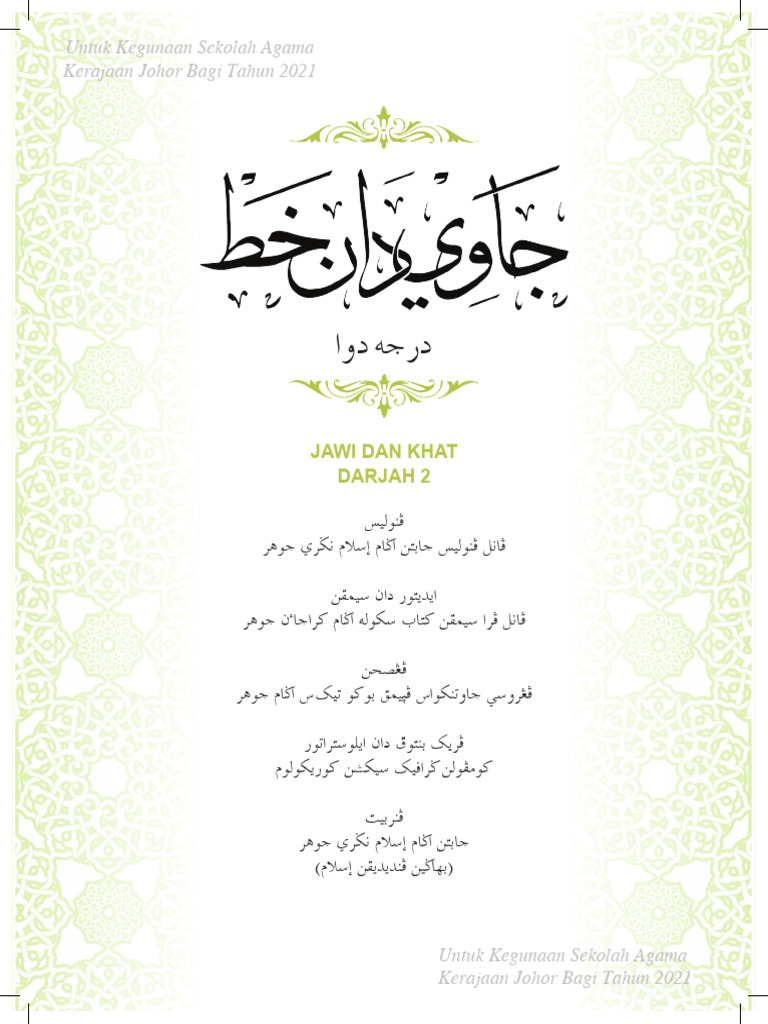 Untuk Kegunaan Sekolah Agama
Kerajaan Johor Bagi Tahun 2021
جاوي دان خط
درجه دوا
JAWI DAN KHAT
DARJAH 2
ڤنوليس
ڤانل ڤنوليس جابتن اݢام إسلام نݢري جوهر
ايديتور دان سيمقن
ڤانل ڤرا سيمقن كتاب سكوله اݢام كراجاءن جوهر
ڤڠصحن
ڤڠروسي جاوتنكواس ڤپيمق بوكو تيک س اݢام جوهر
ڤريک بنتوق دان ايلوستراتور
كومڤولن ݢرافيک سيكشن كوريكولوم
ڤنربيت
جابتن اݢام إسلام نݢري جوهر
(بهاݢين ڤنديديقن إسلام)
Untuk Kegunaan Sekolah Agama
Kerajaan Johor Bagi Tahun 2021